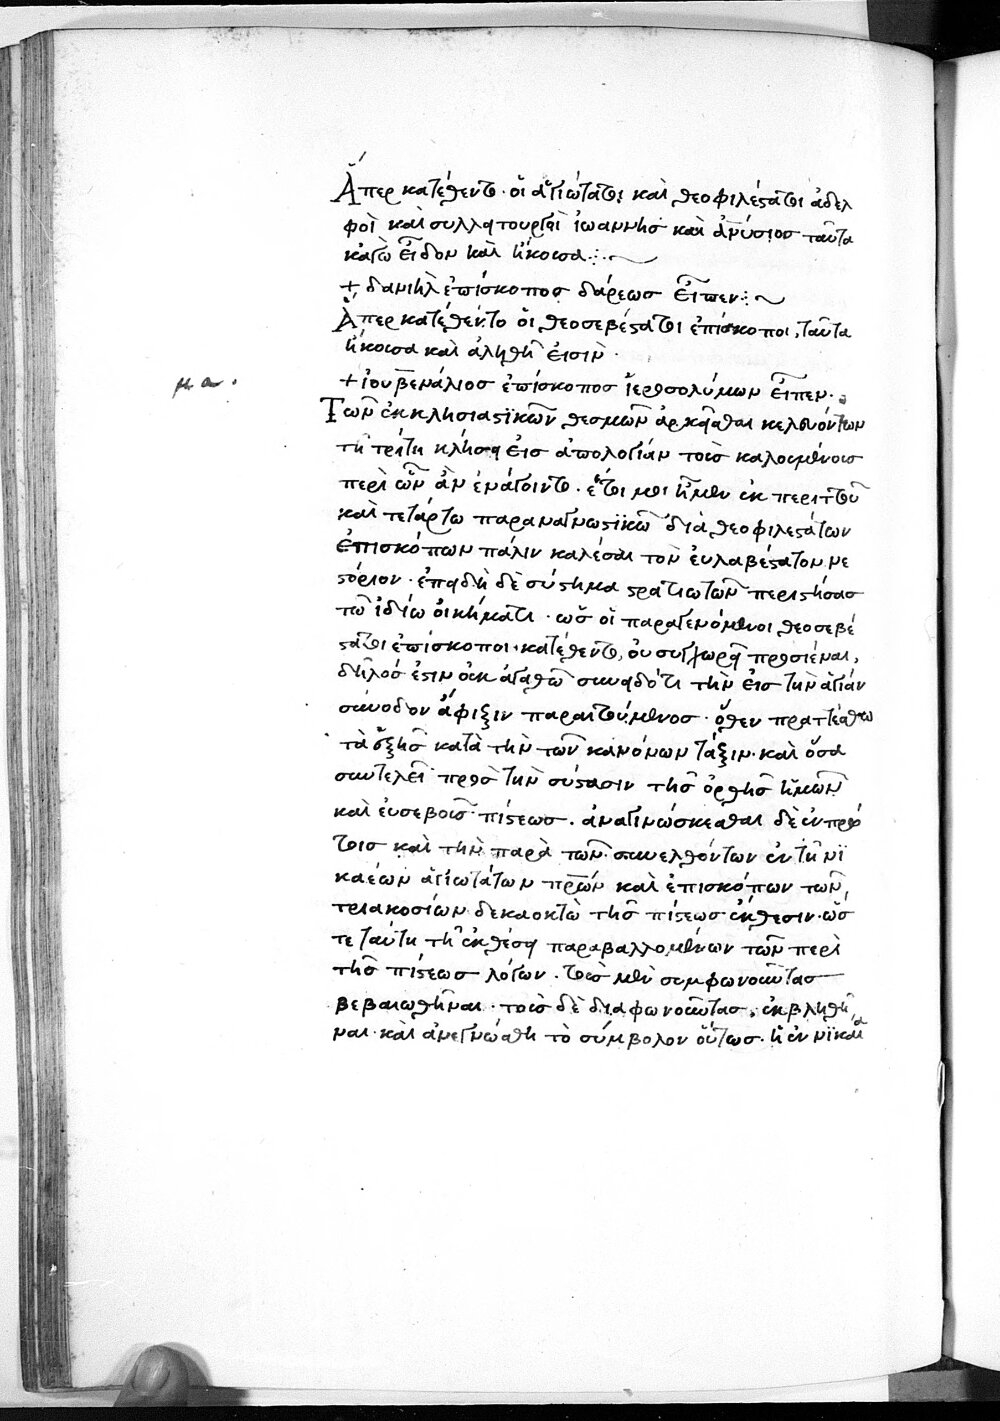 Ἅπερ κατέθεντο· οἱ ἁγιώτατοι καὶ θεοφιλέστατοι ἀδελ
φοὶ καὶ συλλειτουργοὶ ἰωάννης καὶ ἀνύσιος ταῦτα
κἀγὼ εἶδον καὶ ἤκουσα
+ δανιὴλ ἐπίσκοπος δάρεως εἶπεν
Ἅπερ κατέθεντο οἱ θεοσεβέστατοι ἐπίσκοποι, ταῦτα
ἤκουσα καὶ ἀληθῆ εἰσίν·
μα.
+ ἰουβενάλιος ἐπίσκοπος ἱεροσολύμων εἶπεν·
Τῶν ἐκκλησιαστϊκῶν θεσμῶν ἀρκεῖσθαι κελευόντων
τῆ τρίτη κλήσει εἰς ἀπολογίαν τοῖς καλουμένοις
περὶ ὧν ἂν ἐνάγοιντο· ἕτοιμοι ἦμεν ἐκ περιττοῦ
καὶ τετάρτω παραναγνωστϊκῶ διὰ θεοφιλεστάτων
ἐπισκόπων πάλιν καλέσαι τὸν εὐλαβέστατον νε
στόριον· ἐπειδὴ δὲ σύστημα στρατιωτῶν περιστήσας
τῶ ἰδίω οἰκήματι· ὡς οἱ παραγενόμενοι θεοσεβέ
στατοι ἐπίσκοποι· κατέθεντο, οὐ συγχωρεῖ προσιέναι,
δῆλός ἐστιν οὐκ ἀγαθῶ συνειδότι τὴν εἰς τὴν ἁγίαν
σύνοδον ἄφιξιν παραιτούμενος· ὅθεν πραττέσθω
τὰ ἑξῆς κατὰ τὴν τῶν κανόνων τάξιν· καὶ ὅσα
συντελεῖ πρὸς τὴν σύστασιν τῆς ὀρθῆς ἡμῶν
καὶ εὐσεβοῦς πίστεως. ἀναγινώσκεσθαι δὲ ἐν πρώ
τοις καὶ τὴν παρὰ τῶν συνελθόντων ἐν τῆ νϊ
καέων ἁγιωτάτων πρων καὶ ἐπισκόπων τῶν,
τριακοσίων δεκαοκτὼ τῆς πίστεως ἔκθεσιν· ὥς
τε ταύτη τῆ ἐκθέσει παραβαλλομένων τῶν περὶ
τῆς πίστεως λόγων· τοὺς μὲν συμφωνοῦντας
βεβαιωθῆναι· τοὺς δὲ διαφωνοῦντας, ἐκβληθῆ
ναι· καὶ ἀνεγνώσθη τὸ σύμβολον οὕτως· ἡ ἐν νϊκαία